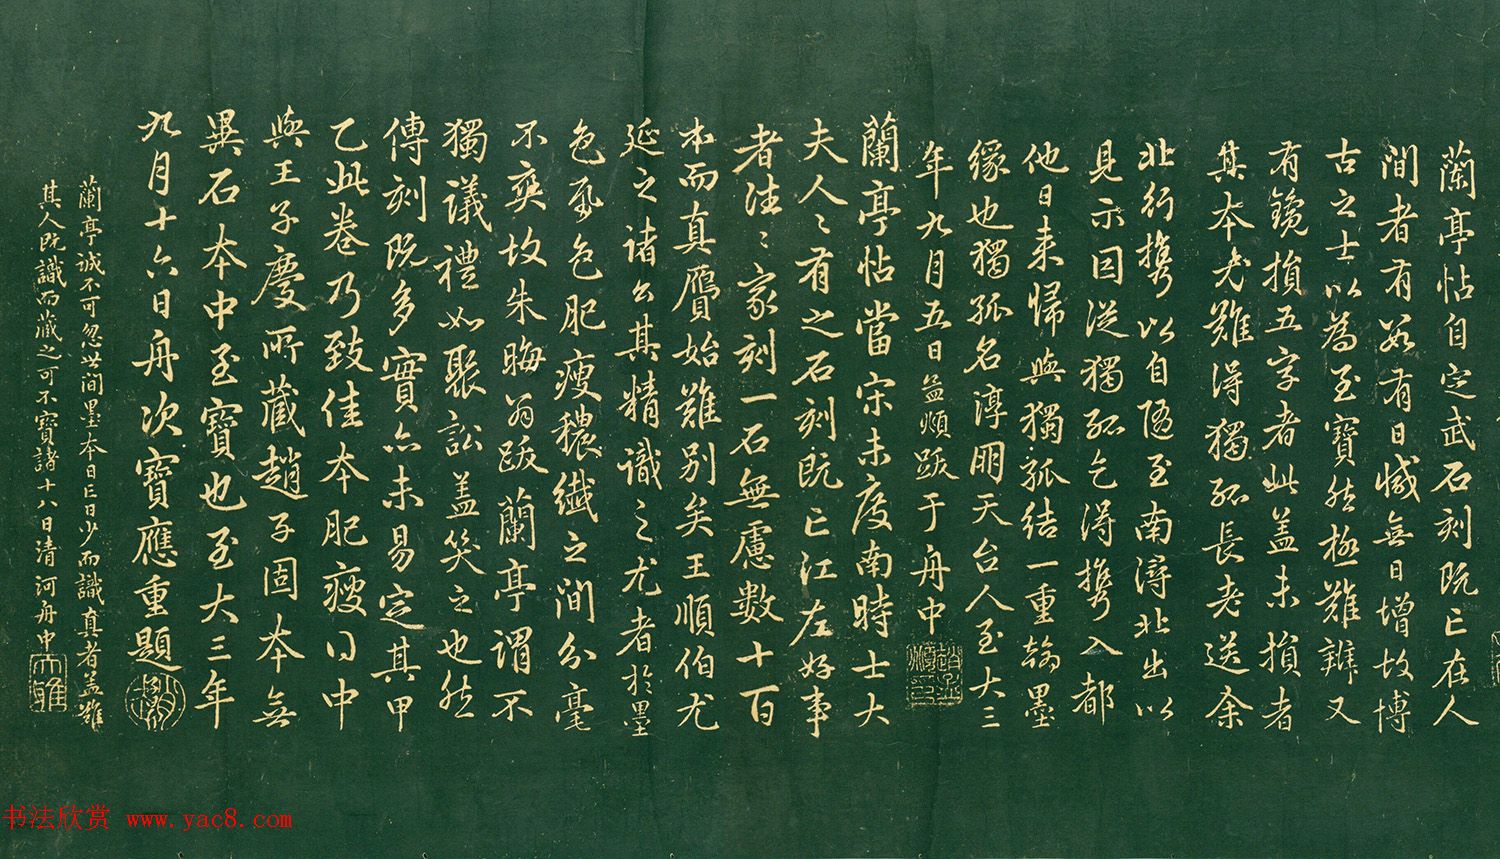 蘭亭帖自定武石刻既亡在人
間者有數有日減無日增故博
古之士以為至寶然極難辨又
有鐫損五字者此蓋未損者
其本尤難得獨孤長老送余
北行攜以自隨至南潯北出以
見示因從獨孤乞得攜入都
他日來歸與獨孤結一重翰墨
緣也獨孤名淳朋天台人至大三
年九月五日孟頫跋于舟中
蘭亭帖當宋未度南時士大
夫人〻有之石刻既亡江左好事
者往〻家刻一石無慮數十百
本而真贋始難別矣王順伯尤
延之諸公其精識之尤者於墨
色風色肥瘦穠纖之間分毫
不爽故朱晦翁跋蘭亭謂不
獨議禮如聚訟蓋笑之也然
傳刻既多實亦未易定其甲
乙此卷乃致佳本肥瘦得中
與王子慶所藏趙子固本無
異石本中至寶也至大三年
九月十六日舟次寶應重題
蘭亭誠不可忽世間墨本日亡日少而識真者蓋難
其人既識而藏之可不寶諸十八日清河舟中
书法欣赏 www.yac8.com